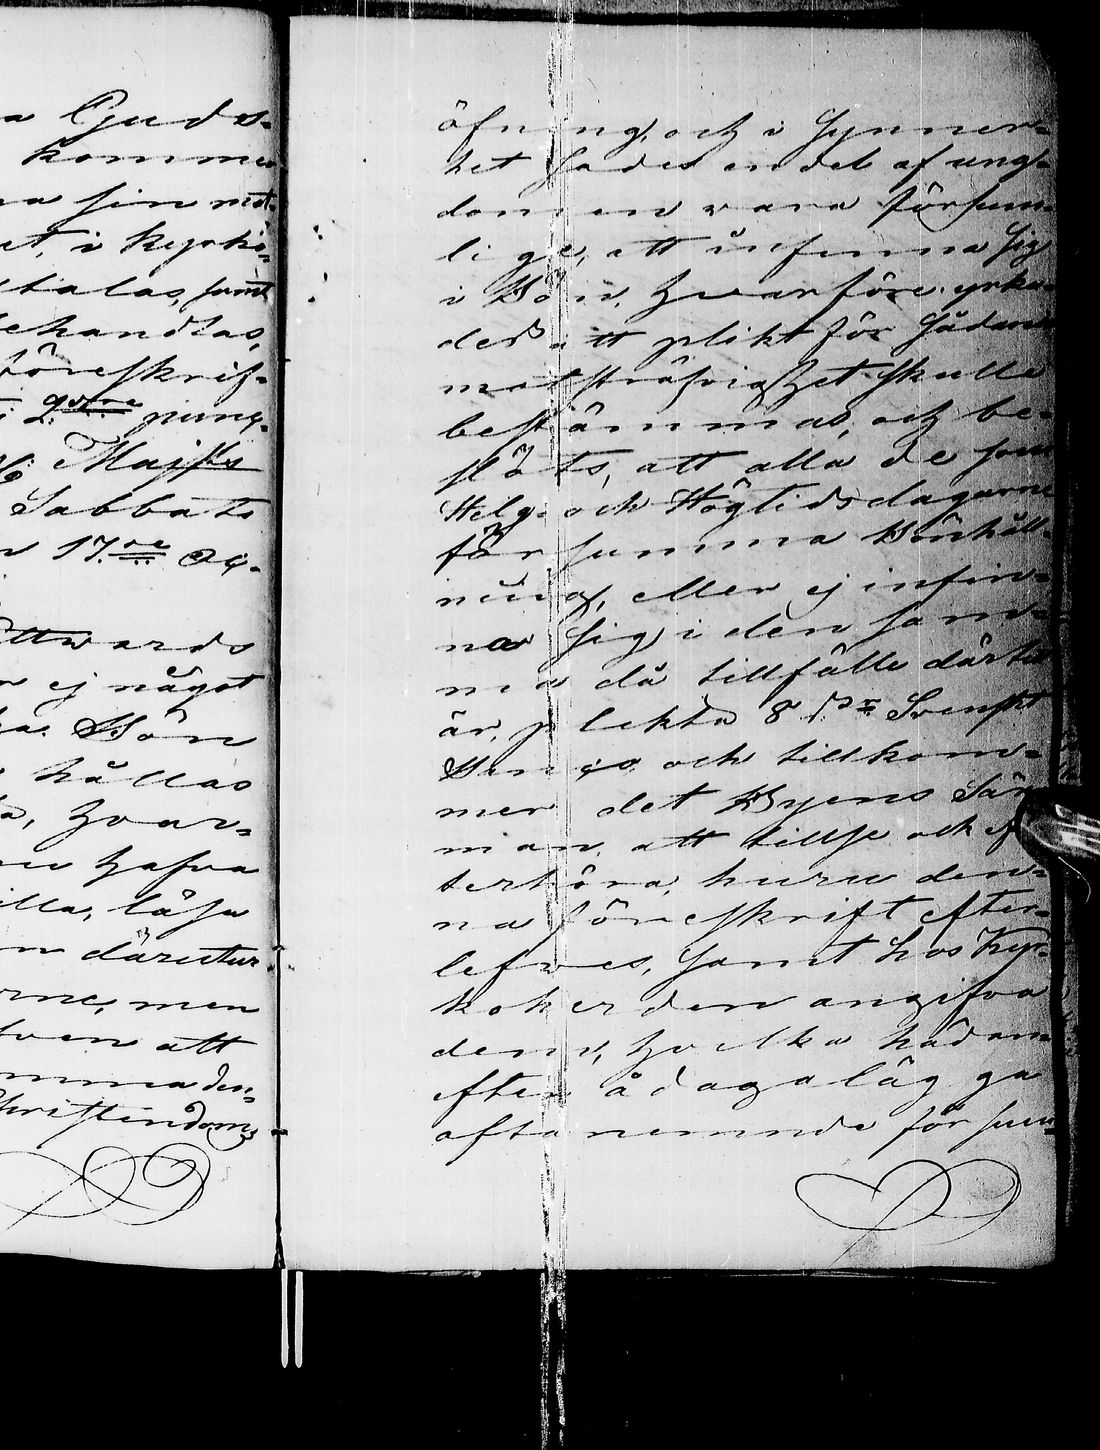 a Guds-
komma
na sin mot-
et, i Kyrko-
talas, samt
behandlas,
föreskrif-
i 2dra punc-
Majsts
Sabbats
17de Oc-
Ottwards
ej något
ha Bön
hållas
a, hvar-
hafva
illa, läsa
n därutur
rne, men
även att
mma den-
Christendoms
öfning, och i synner-
het sades en del af ung-
domen vara försum-
lige, att infinna sig
i Bön, hvarföre yrka-
des att plikt för sådan
motsträfvighet skulle
bestämmas, och be-
slöts, att alla de som
Helg- och Högtidsdagarne
försumma Bönhåll-
ning, eller ej infin-
na sig i den sam-
ma då tillfälle därtil
är, plikta 8 s. Svenskt
Banco och tillkom-
mer det Byens
man att tillse och ef-
terhöra, huru den-
na föreskrift efter-
lefves, samt hos Kyr-
koherden angifva
dem, hvilka hädan-
efter ådagalägga
oftanemnde försum-